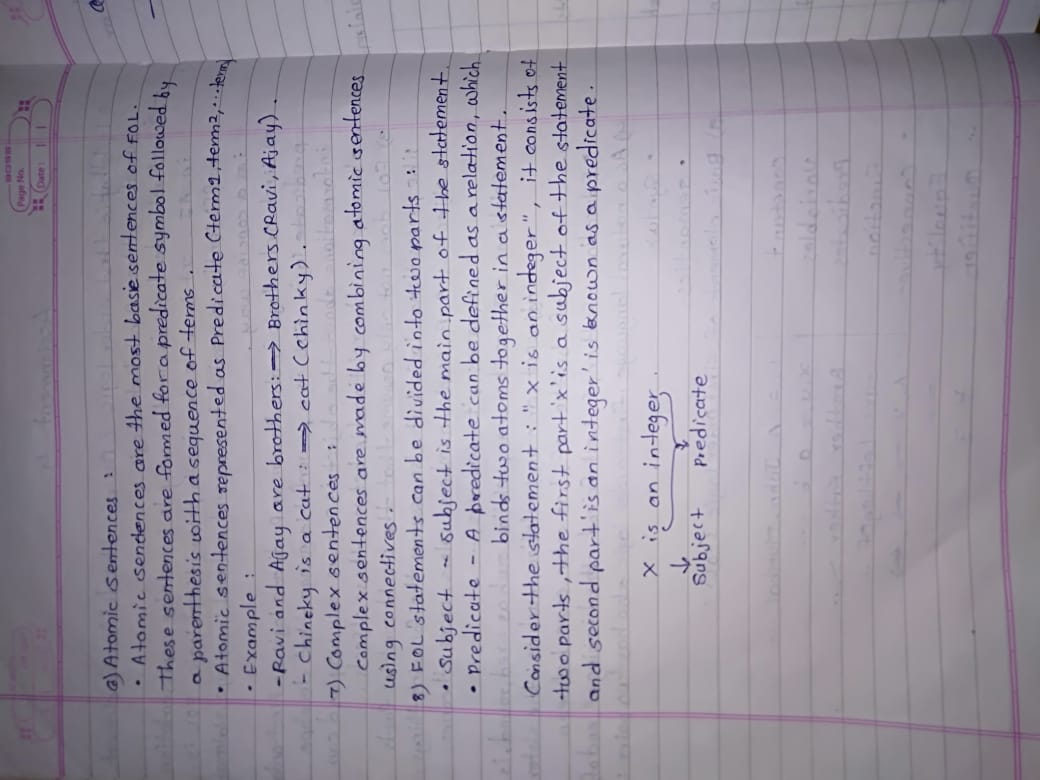 Page No.
Date: | |
6) Atomic sentences :
• Atomic sentences are the most basic sentences of FOL.
These sentences are formed for a predicate symbol followed by
a parenthesis with a sequence of terms.
• Atomic sentences represented as Predicate (term1, term2, ...term
• Example :
- Ravi and Ajay are brothers: => Brothers (Ravi, Ajay).
- Chinky is a cat : => cat (chinky).
7) Complex sentences :
complex sentences are made by combining atomic sentences
using connectives.
8) FOL statements can be divided into two parts :
• Subject - subject is the main part of the statement.
• Predicate - A predicate can be defined as a relation, which
binds two atoms together in a statement.
Consider the statement : "x is an integer", it consists of
two parts, the first part 'x' is a subject of the statement
and second part 'is an integer' is known as a predicate.
x is an integer.
Subject Predicate